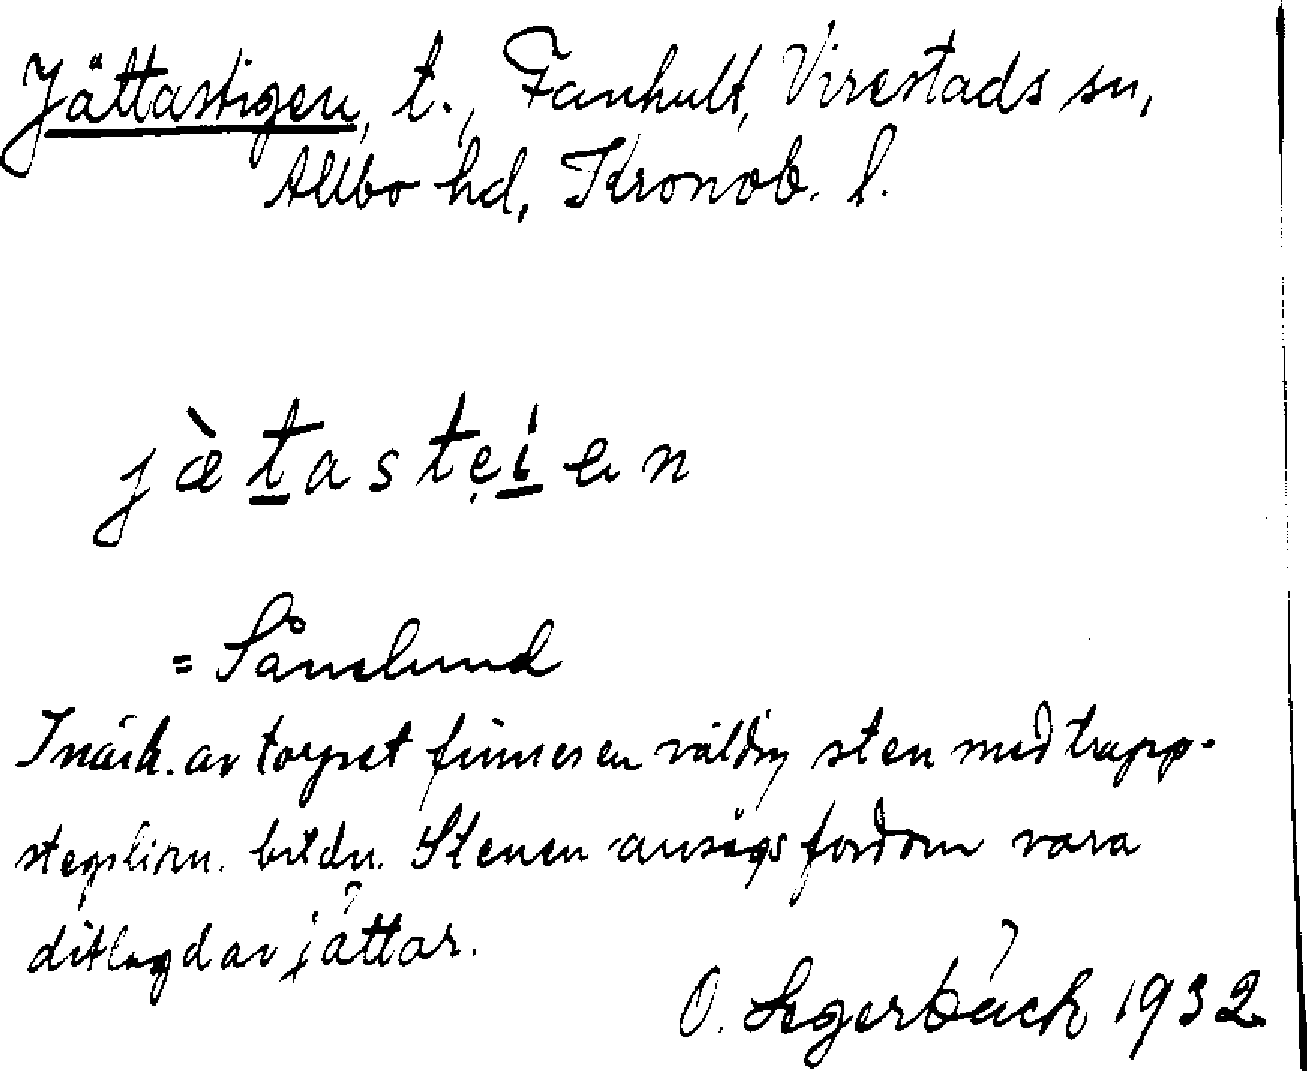 Jättastigen, t., Fanhult, Virestads sn,
Allbo hd, Kronob. l.
jæ̀tastẹien
= Sånslund
I närh. av torpet finnes en väldig sten med trapp-
stegsliкn. bildn. Stenen ansågs fordom vara
ditlagd av jättar.
O. Segerbäck 1932